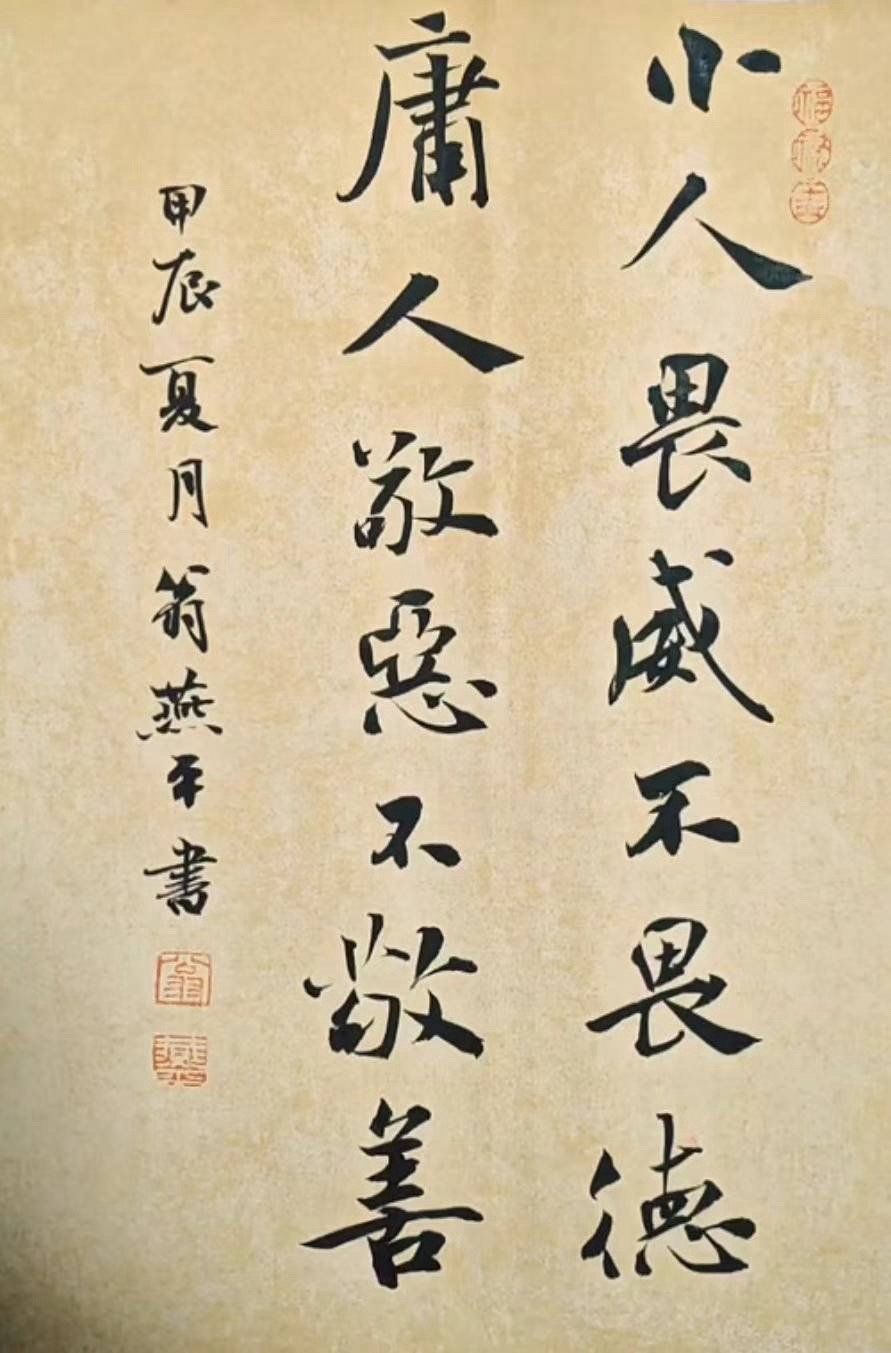 小人畏威不畏德
庸人敬惡不敬善
甲辰夏月翁燕平書